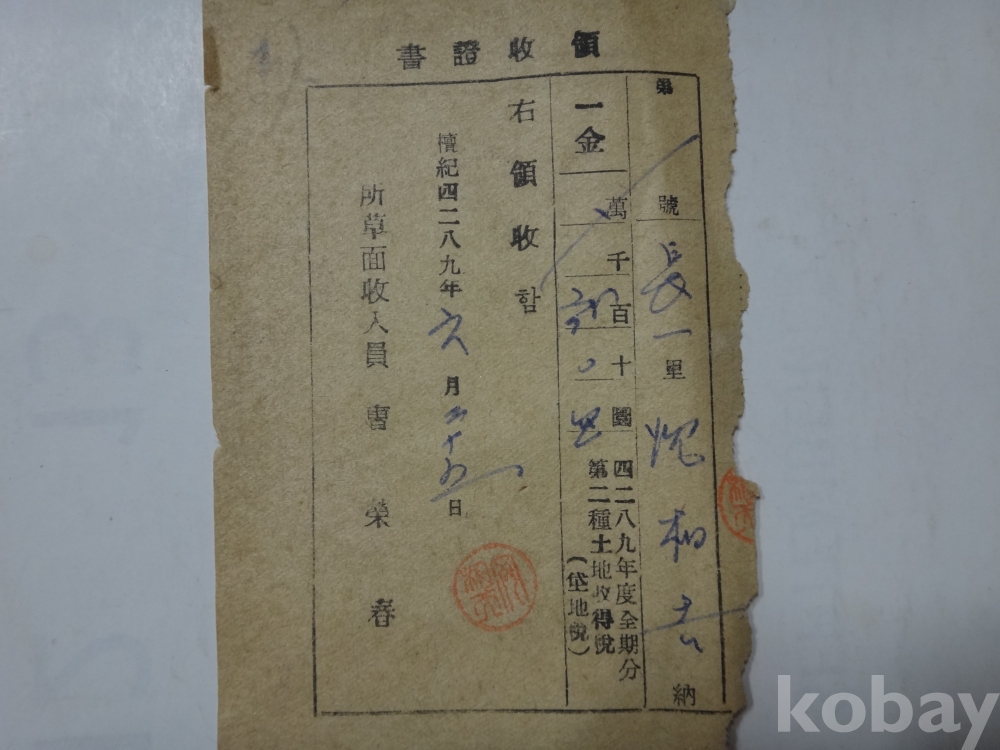 領收證書
第 號 長一里 相吉 納
一金 萬千百十圜 四二八九年度全期分
第二種土地收得稅
(垈地稅)
右領收함
檀紀四二八九年六月二十五日
所草面收入員 曺榮春
kobay